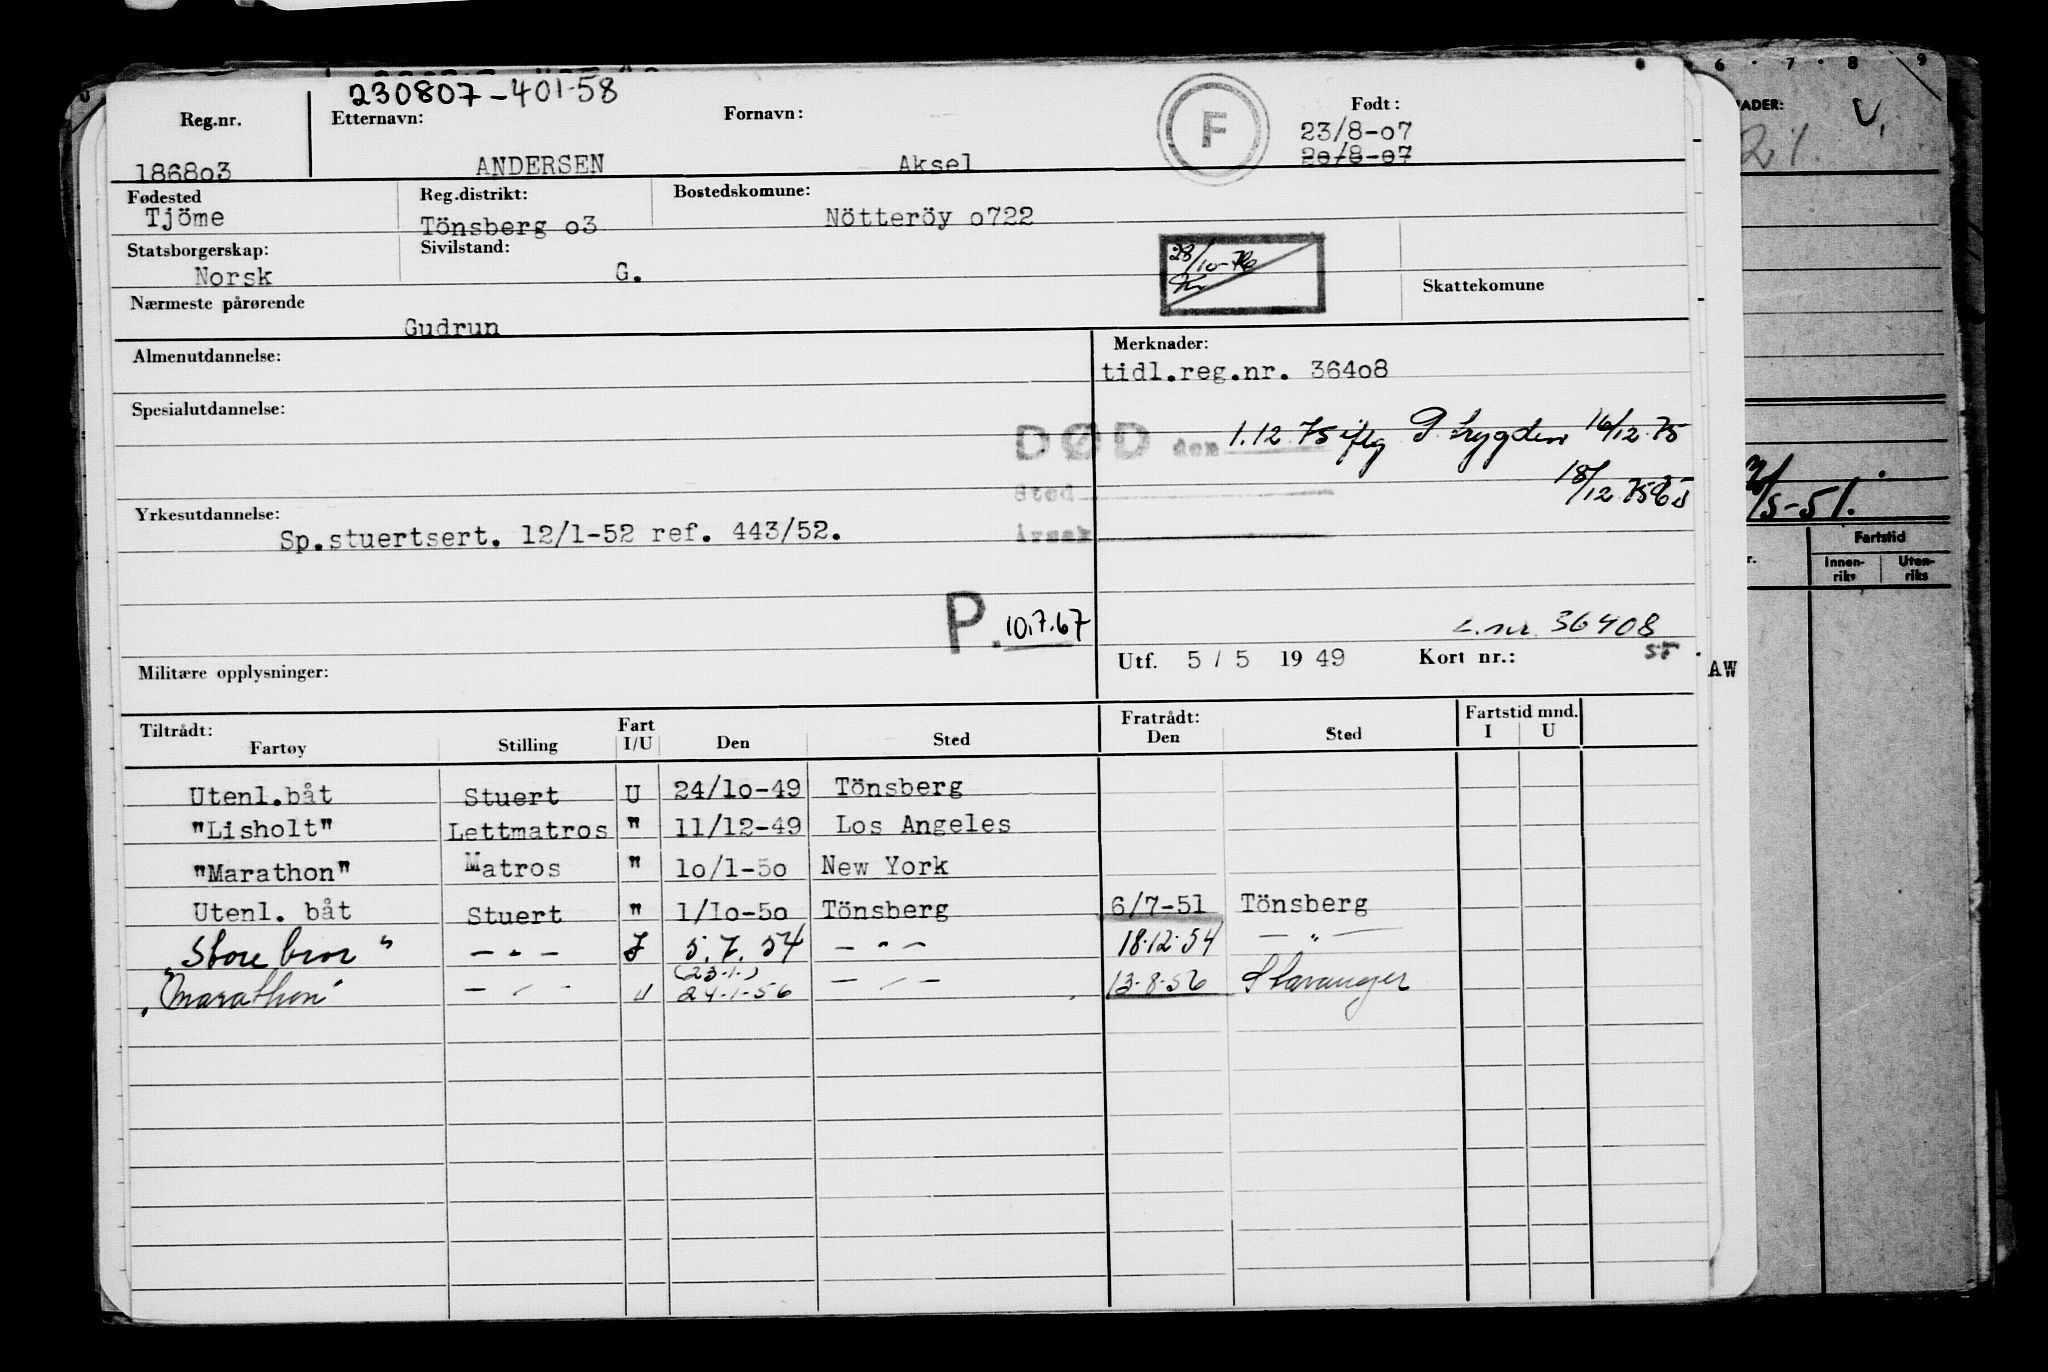 230807-401-58
Reg.nr. Etternavn: Fornavn: F Født:
23/8-o7
1868o3 ANDERSEN Aksel 2o/8-o7
Fødested Reg.distrikt: Bostedskomune:
Tjöme Tönsberg o3 Nötteröy o722
Statsborgerskap: Sivilstand:
Norsk G. 28/10-76
Skattekomune
Nærmeste pårørende
Gudrun
Almenutdannelse: Merknader:
tidl.reg.nr. 364o8
Spesialutdannelse:
DØD den 1.12.75 iflg P.trygden 16/12.75
Sted 18/12 75
Yrkesutdannelse: Årsak
Sp.stuertsert. 12/1-52 ref. 443/52.
P. 10.7.67
L.nr. 36408
ST
Militære opplysninger: Utf. 5 / 5 19 49 Kort nr.:
Tiltrådt: Fratrådt: Fartstid mnd.
Fartøy Stilling Fart I/U Den Sted Den Sted I U
Utenl.båt Stuert U 24/1o-49 Tönsberg
"Lisholt" Lettmatros " 11/12-49 Los Angeles
"Marathon" Matros " 1o/1-5o New York
Utenl. båt Stuert " 1/1o-5o Tönsberg 6/7-51 Tönsberg
"Store bror" — " — I 5.7.54 — " — 18.12.54 — " —
(23.1.)
"Marathon" — " — U 24-1-56 — " — 13.8.56 Stavanger
6 · 7 · 8 9
NADER: V.
21.
/5-51.
Fartstid
r. Innen-riks Uten-riks
AW